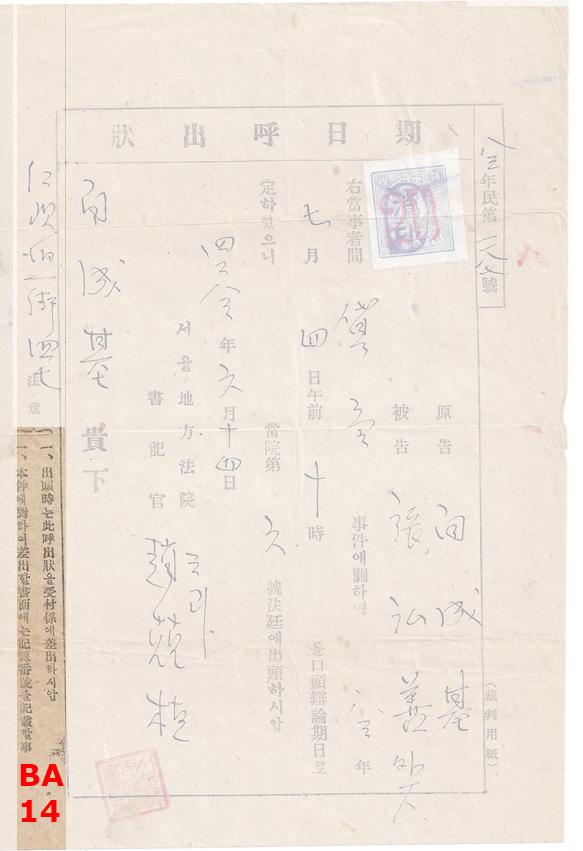 期日呼出狀
八三年民第 號
(裁判用紙)
原告 白成基
被告 張弘善外六
右當事者間 事件에關하여 八三年
七月四日午前十時 을口頭辯論期日로
定하였으니 當院第六號法廷에出頭하시압
年六月十四日
서울地方法院
書記官 趙 植
白成基 貴下
仁峴 一街四七
注意
一、出頭時는此呼出狀을受付係에差出하시압
一、本件에對하여差出할書面에는記錄番號를記載할事
BA
14